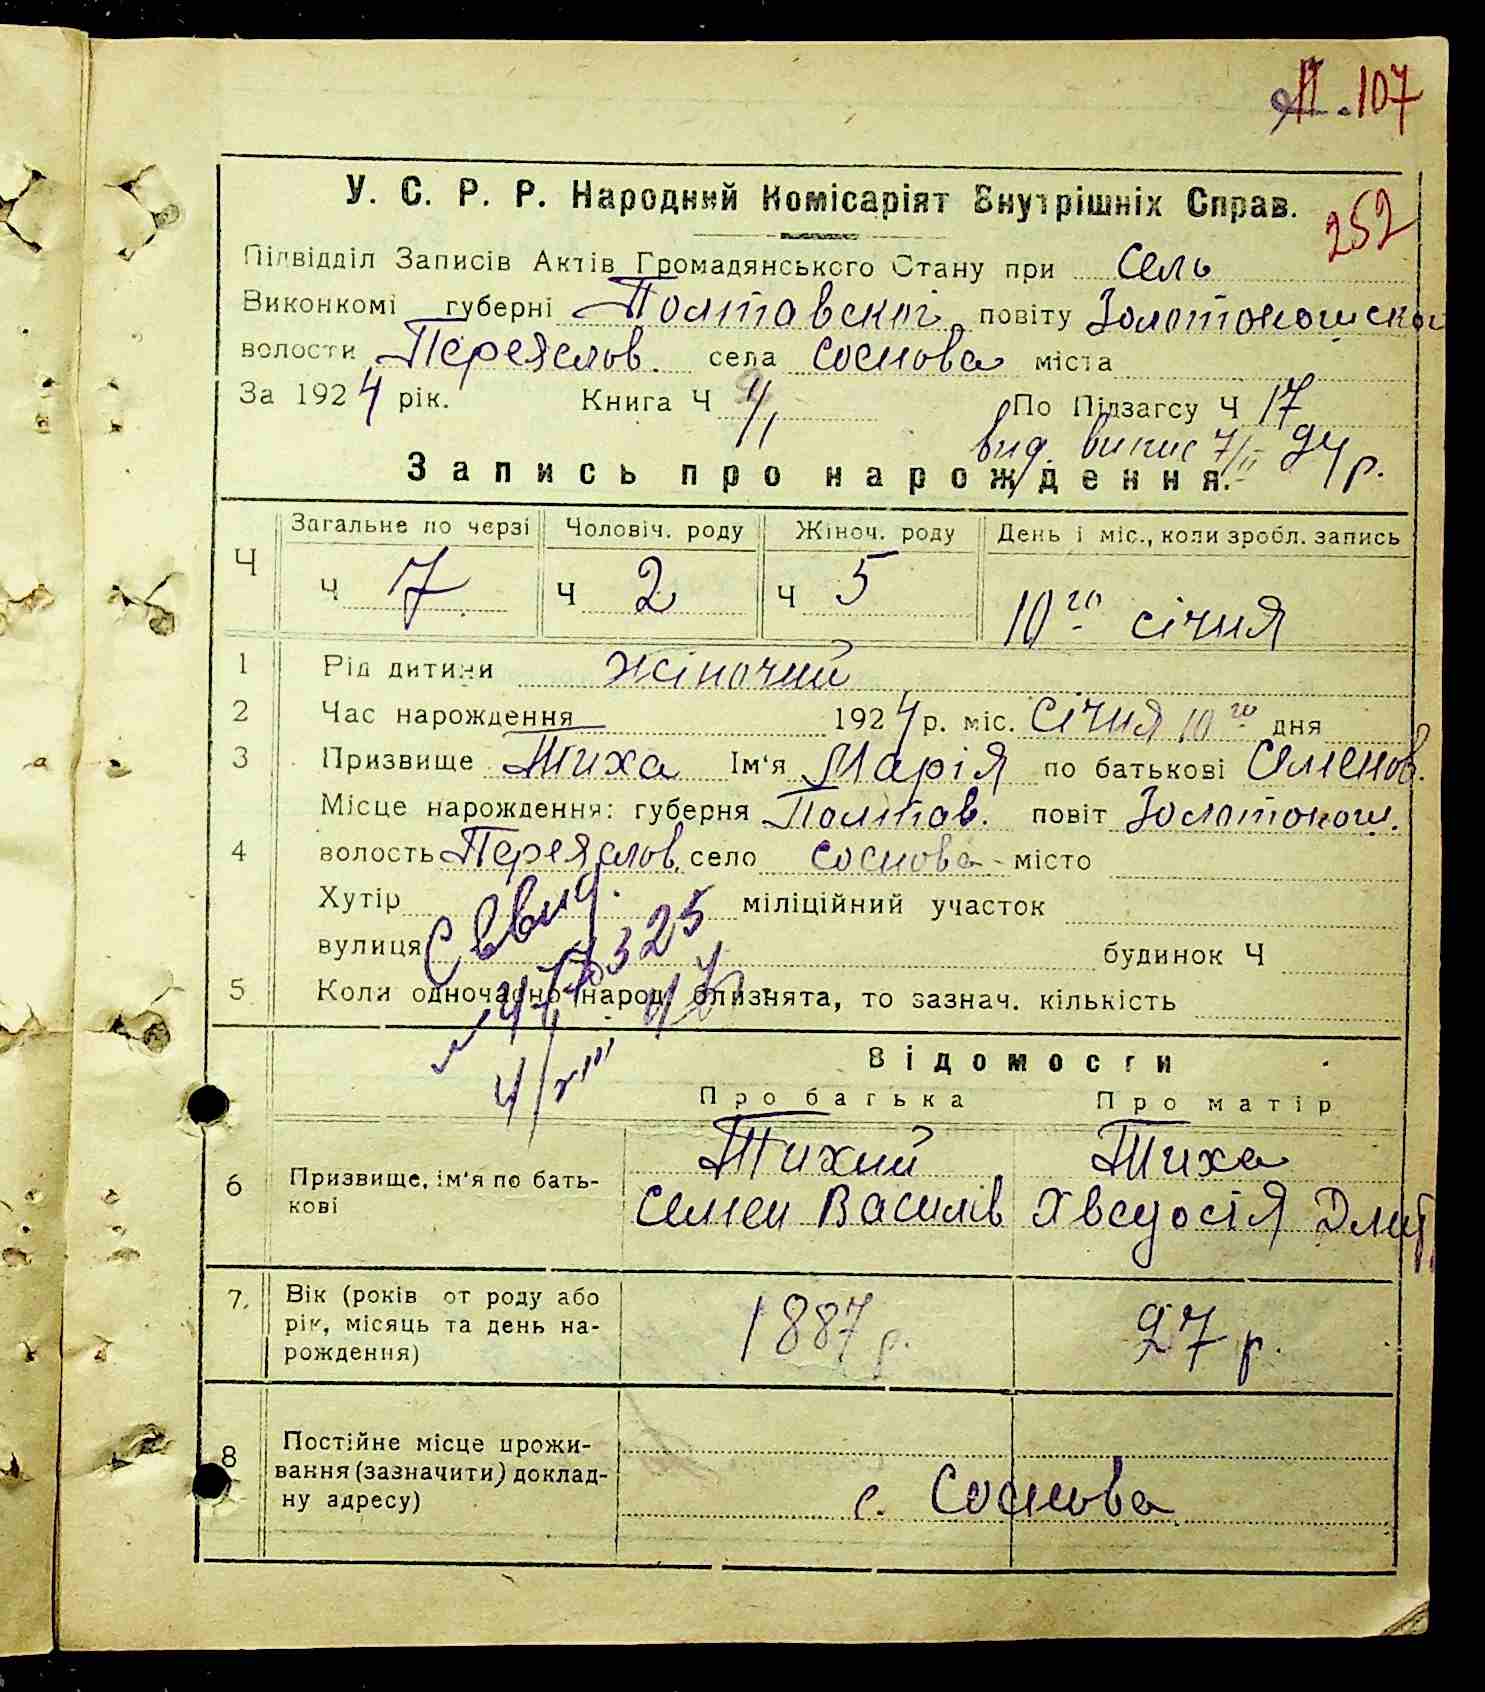 107
252
У. С. Р. Р. Народний Комісаріят Внутрішніх Справ.
Підвідділ Записів Актів Громадянського Стану при Сель
Виконкомі губерні Полтавскої повіту Золотоношскої
волости Переяслов. села Соснова міста
За 1924 рік. Книга Ч По Підзагсу Ч 17
вид. випис 7/II 94 р.
Запись про нарождення.
Загальне по черзі Чоловіч. роду Жіноч. роду День і міс., коли зробл. запись
Ч Ч 7 Ч 2 Ч 5 10го січня
1 Рід дитини жіночий
2 Час нарождення 1924 р. міс. Січня 10го дня
3 Призвище Тиха Ім'я Марія по батькові Семенов.
Місце нарождення: губерня Полтав. повіт Золотонош.
4 волость Переяслов. село Соснова місто
Хутір міліційний участок
вулиця будинок Ч
Свид.
5 Коли одночасно народ. близнята, то зазнач. кількість
Відомости
Про батька Про матір
Тихий Тиха
6 Призвище, ім'я по бать-
кові Семен Василів Хведосія Дмит.
7. Вік (років от роду або
рік, місяць та день на-
рождення) 1887 р. 27 р.
8 Постійне місце прожи-
вання (зазначити) доклад-
ну адресу) с. Соснова